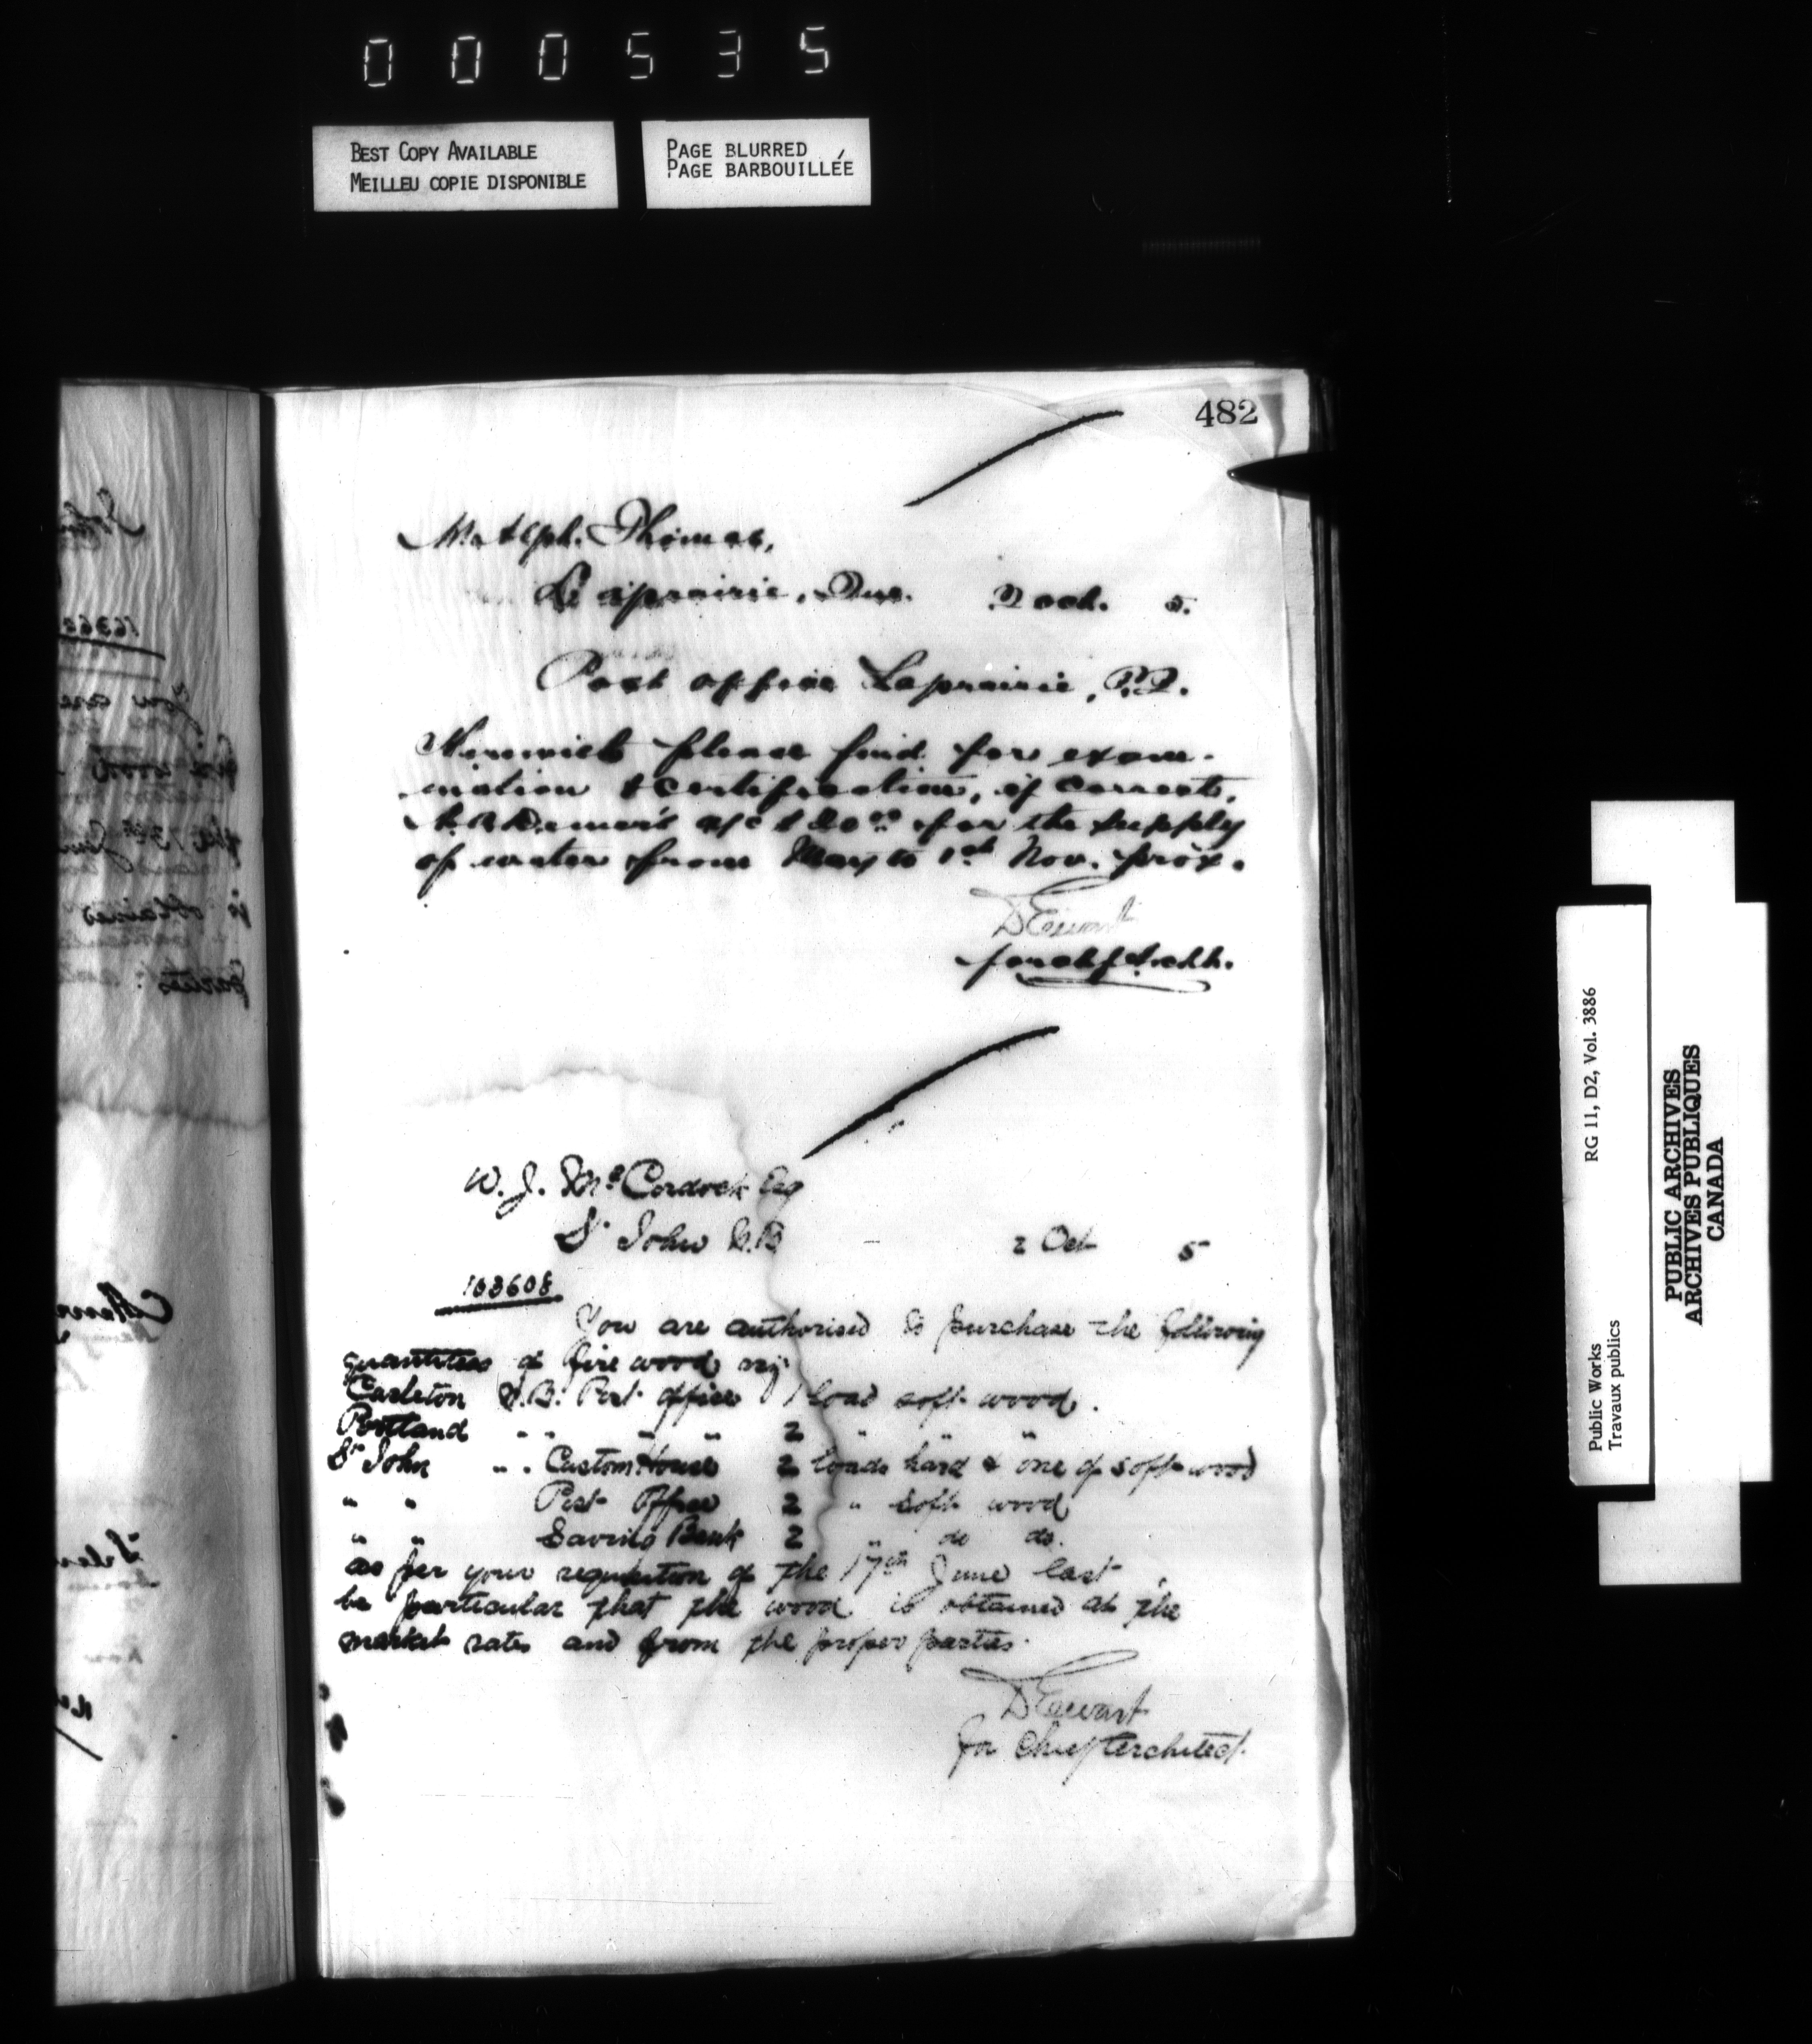 000535
BEST COPY AVAILABLE
MEILLEU COPIE DISPONIBLE
PAGE BLURRED
PAGE BARBOUILLÉE
482
M. Alph. Thomas,
Laprairie, Que. 2 Oct. 5.
Post office Laprairie, P.Q.
Herewith please find for exam-
ination & certification, if correct,
a/c $20.00 for the supply
of water from May to 1st Nov. prox.
D Ewart
for chf Archt.
W. J. McCordock Esq
St John N.B 2 Oct 5
103608
You are authorised to purchase the following
quantities of fire wood viz
Carleton N.B. Post office 1 load soft wood.
Portland " " " " 2 " " "
St John " " Custom House 2 loads hard & one of soft wood
" " Post Office 2 " soft wood
" " Savings Bank 2 " do do.
as per your requisition of the 17th June last,
be particular that the wood is obtained at the
market rates and from the proper parties.
D Ewart
for Chief Architect.
Public Works RG 11, D2, Vol. 3886
Travaux publics
PUBLIC ARCHIVES
ARCHIVES PUBLIQUES
CANADA